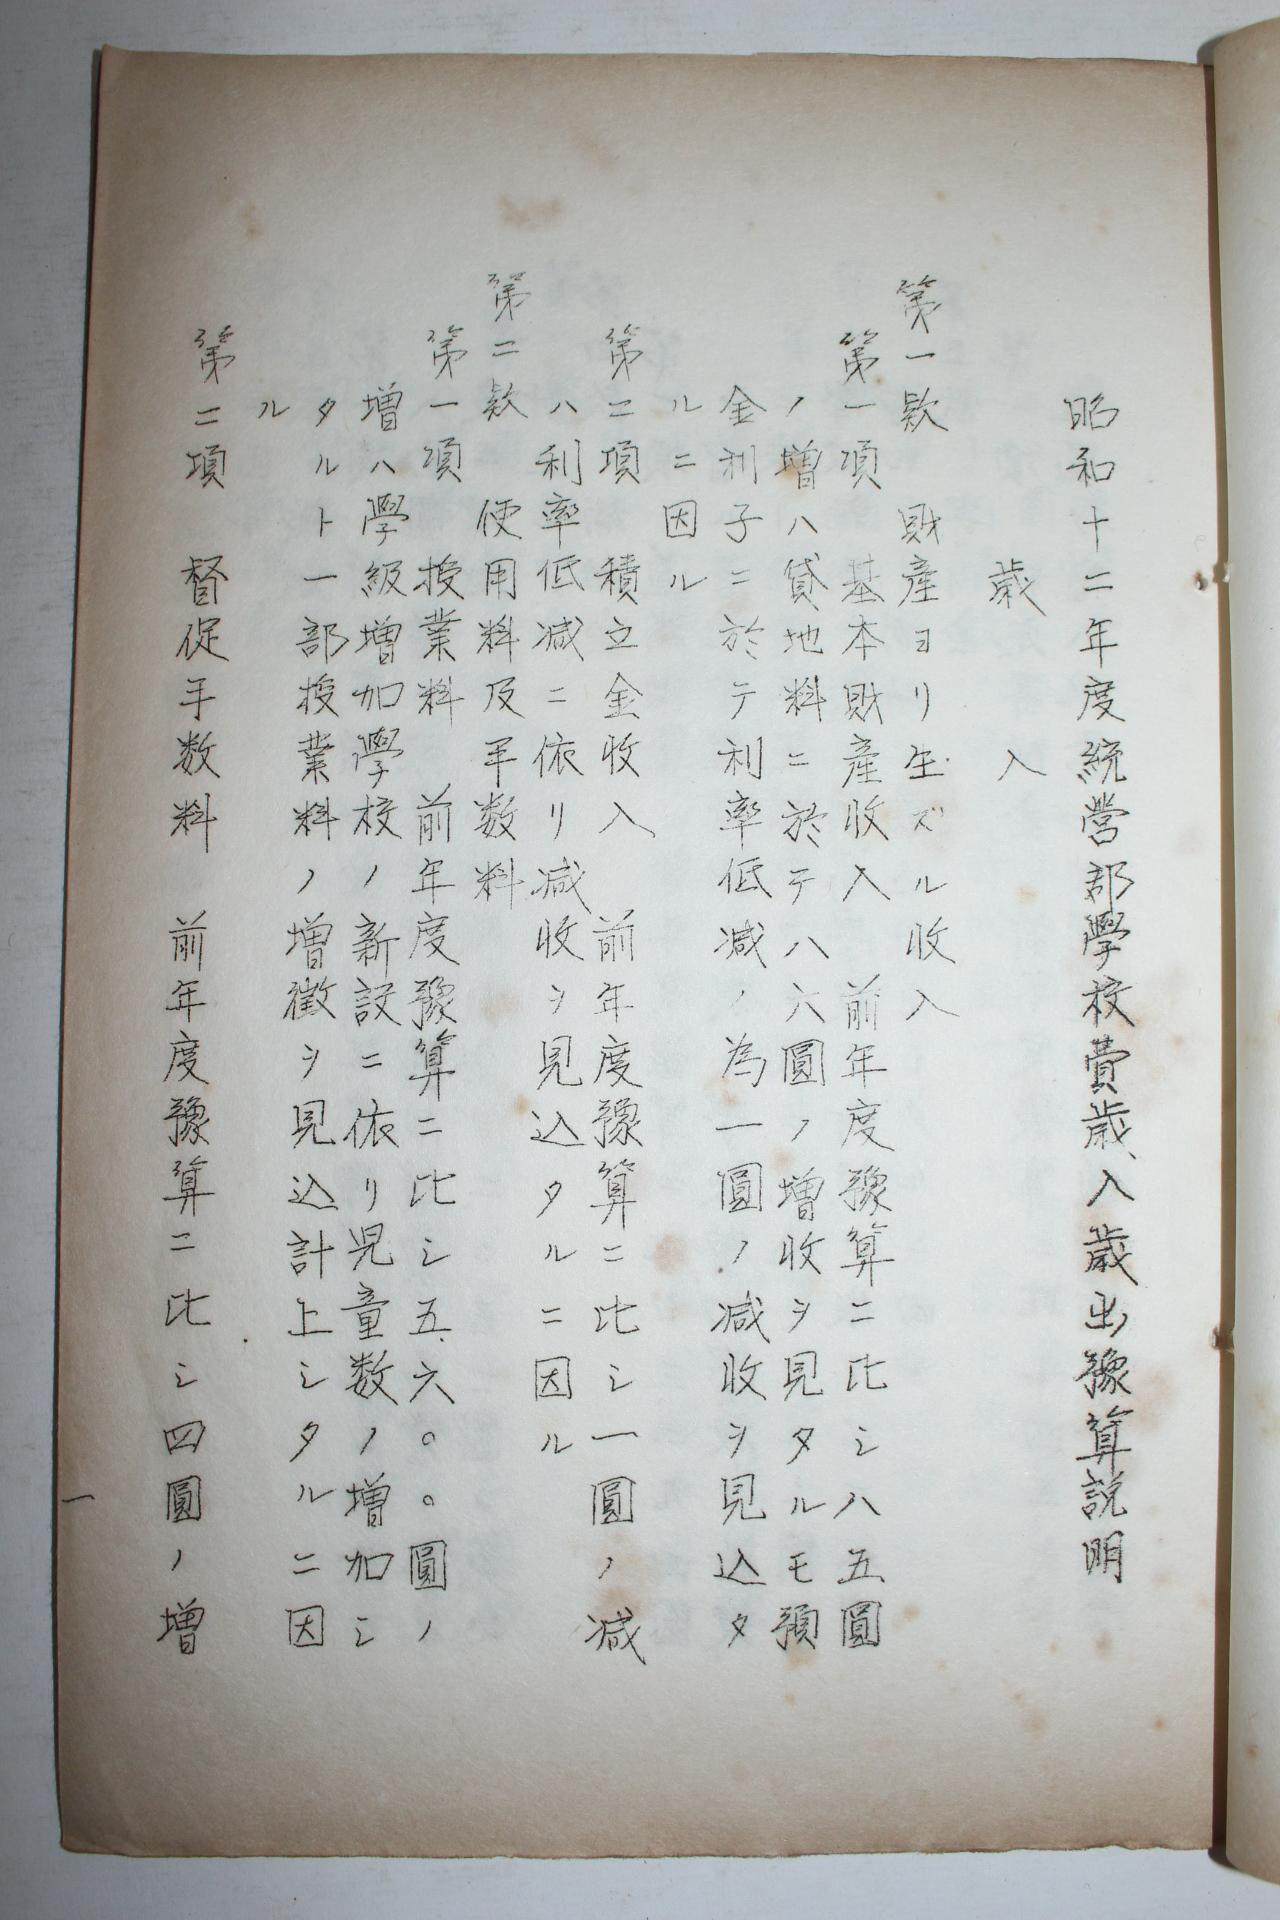 昭和十二年度統営郡學校費歳入歳出豫算説明
歳入
第一款 財産ヨリ生ズル收入
第一項 基本財産收入 前年度豫算ニ比シ八五圓
ノ増ハ貸地料ニ於テ八六圓ノ増收ヲ見タルモ預
金利子ニ於テ利率低減ノ為一圓ノ減收ヲ見込タ
ルニ因ル
第二項 積立金收入 前年度豫算ニ比シ一圓ノ減
ハ利率低減ニ依リ減收ヲ見込タルニ因ル
第二款 使用料及手数料
第一項 授業料 前年度豫算ニ比シ五、六〇〇圓ノ
増ハ學級増加學校ノ新設ニ依リ児童数ノ増加シ
タルト一部授業料ノ増徴ヲ見込計上シタルニ因
ル
第二項 督促手数料 前年度豫算ニ比シ四圓ノ増
一